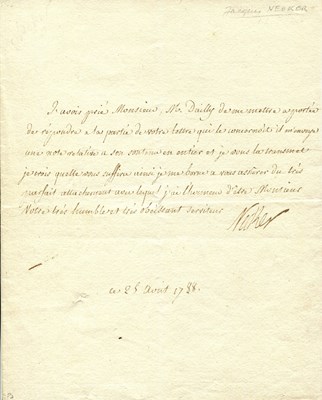 Jacques NECKER
J'avois prié Monsieur, Mr. Dailly de me mettre a portée
de répondre a la partie de votre lettre qui le concernoit il m'envoye
une note relative a son contenu en entier et je vous la transmet
je crois quelle vous suffira ainsi je me borne a vous assurer du très
parfait attachement avec lequel j'ai l'honneur d'estre Monsieur
Votre très humble et très obéissant serviteur
Necker
ce 28 Aout 1788.